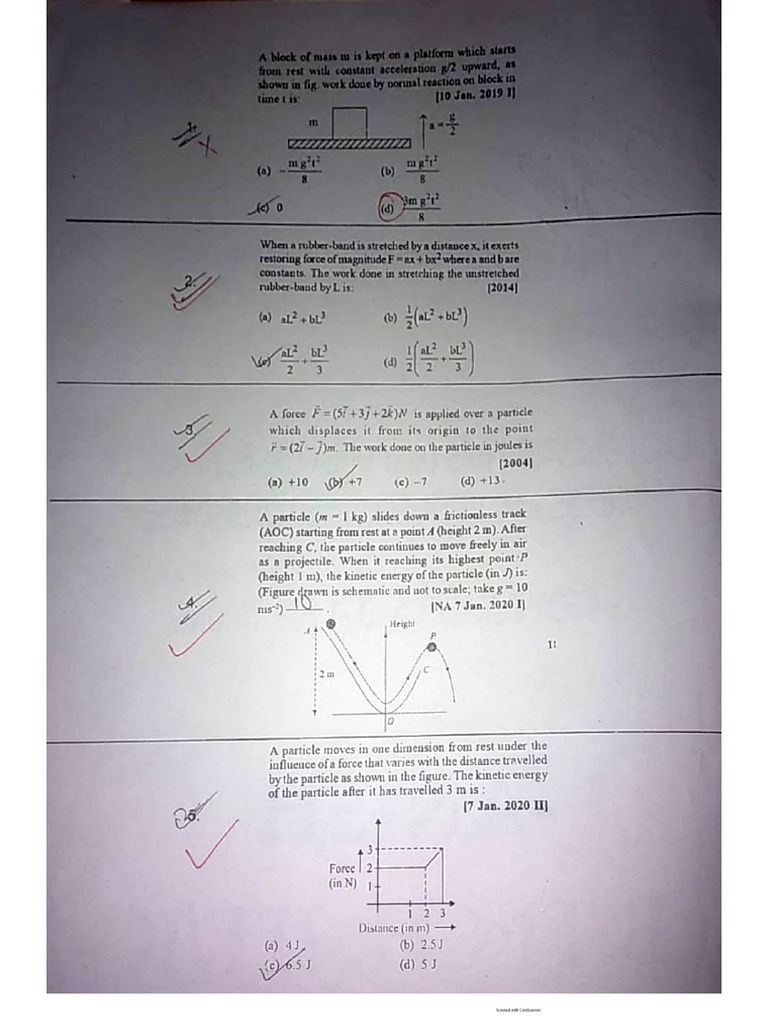 A block of mass m is kept on a platform which starts
from rest with constant acceleration g/2 upward, as
shown in fig. work done by normal reaction on block in
time t is: [10 Jan. 2019 I]
1.
m a = g/2
(a) - m g²t²/8 (b) m g²t²/8
(c) 0 (d) 3m g²t²/8
When a rubber-band is stretched by a distance x, it exerts
restoring force of magnitude F = ax + bx² where a and b are
constants. The work done in stretching the unstretched
rubber-band by L is: [2014]
2.
(a) aL² + bL³ (b) 1/2 (aL² + bL³)
(c) aL²/2 + bL³/3 (d) 1/2 (aL²/2 + bL³/3)
A force F⃗ = (5i⃗ + 3j⃗ + 2k⃗)N is applied over a particle
which displaces it from its origin to the point
r⃗ = (2i⃗ – j⃗)m. The work done on the particle in joules is
[2004]
3.
(a) +10 (b) +7 (c) –7 (d) +13
A particle (m = 1 kg) slides down a frictionless track
(AOC) starting from rest at a point A (height 2 m). After
reaching C, the particle continues to move freely in air
as a projectile. When it reaching its highest point P
(height 1 m), the kinetic energy of the particle (in J) is:
(Figure drawn is schematic and not to scale; take g = 10
ms⁻²) 10 . [NA 7 Jan. 2020 I]
4.
A Height P
C
2 m
O
A particle moves in one dimension from rest under the
influence of a force that varies with the distance travelled
by the particle as shown in the figure. The kinetic energy
of the particle after it has travelled 3 m is :
[7 Jan. 2020 II]
5.
3
Force 2
(in N) 1
1 2 3
Distance (in m)
(a) 4 J (b) 2.5 J
(c) 6.5 J (d) 5 J
Scanned with CamScanner